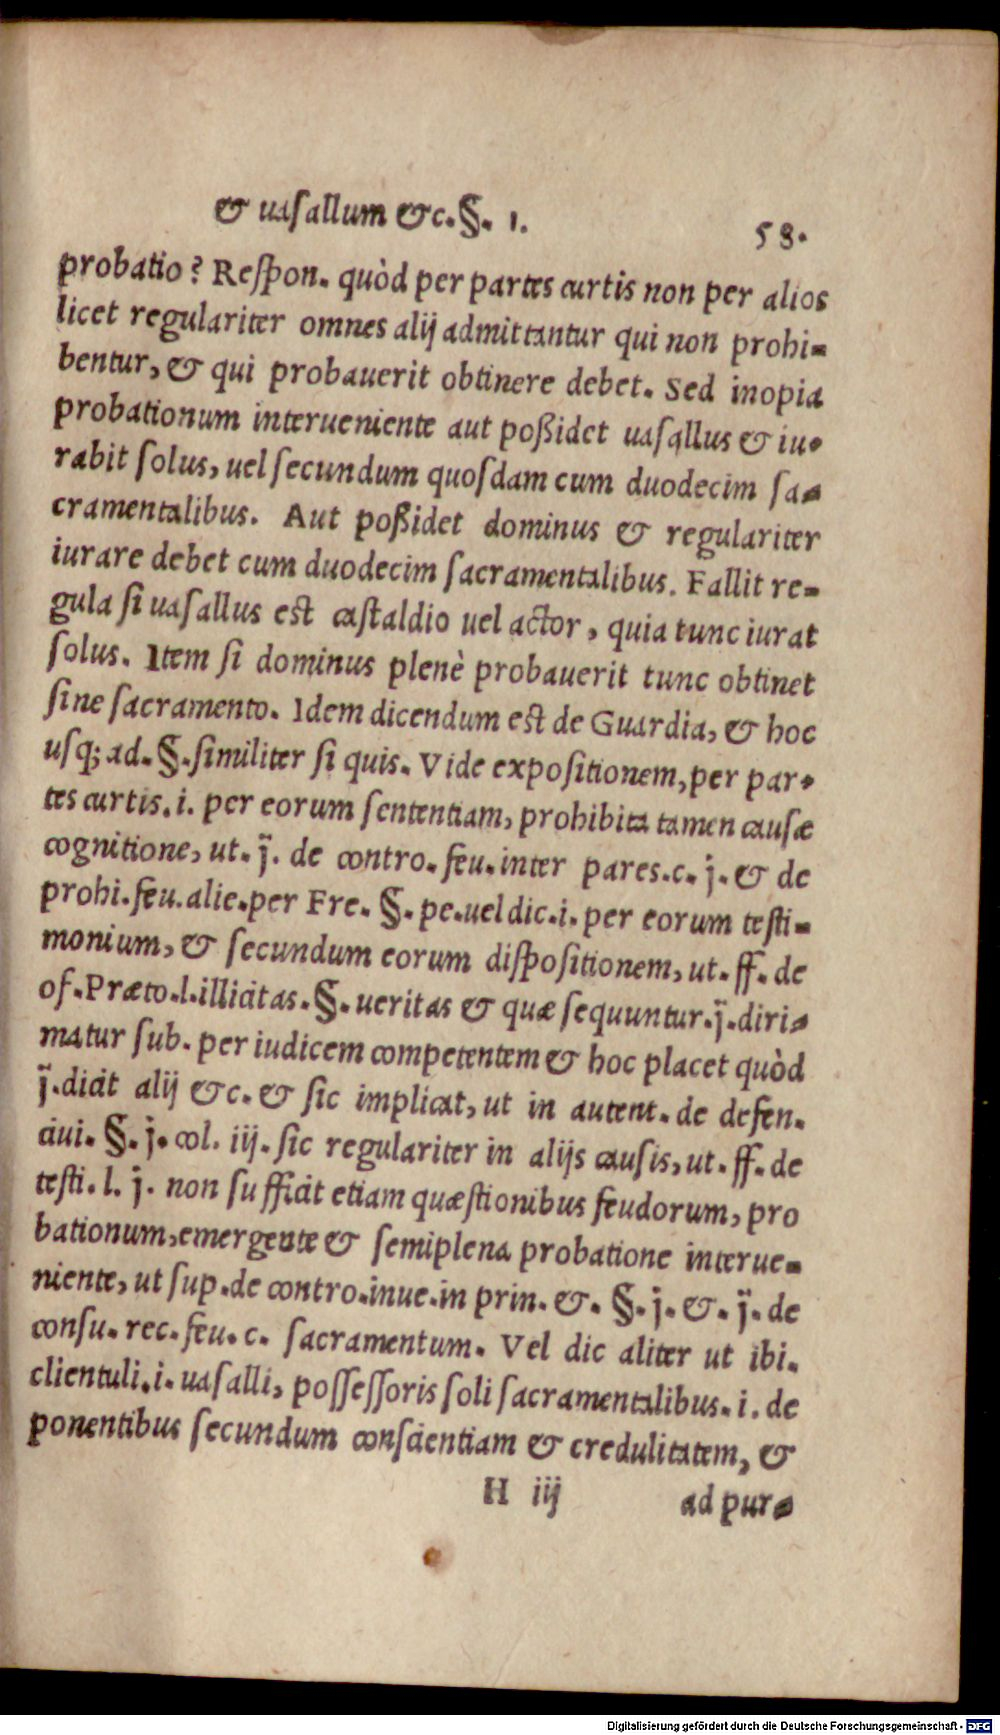 & uasallum &c. §. 1.
58.
probatio? Respon. quòd per partes curtis non per alios
licet regulariter omnes alij admittantur qui non prohi-
bentur, & qui probauerit obtinere debet. Sed inopia
probationum interueniente aut poßidet uasallus & iu-
rabit solus, uel secundum quosdam cum duodecim sa-
cramentalibus. Aut poßidet dominus & regulariter
iurare debet cum duodecim sacramentalibus. Fallit re-
gula si uasallus est castaldio uel actor, quia tunc iurat
solus. Item si dominus plenè probauerit tunc obtinet
sine sacramento. Idem dicendum est de Guardia, & hoc
usq; ad. §. similiter si quis. Vide expositionem, per par-
tes curtis. i. per eorum sententiam, prohibita tamen causæ
cognitione, ut. j̈. de contro. feu. inter pares. c. j. & de
prohi. feu. alie. per Fre. §. pe. uel dic. i. per eorum testi-
monium, & secundum eorum dispositionem, ut. ff. de
of. Præto. l. illicitas. §. ueritas & quæ sequuntur. j̈. diri-
matur sub. per iudicem competentem & hoc placet quòd
j̈. dicit alij &c. & sic implicat, ut in autent. de defen.
ciui. §. j. col. iij. sic regulariter in alijs causis, ut. ff. de
testi. l. j. non sufficit etiam quæstionibus feudorum, pro
bationum, emergente & semiplena probatione interue-
niente, ut sup. de contro. inue. in prin. &. §. j. &. j̈. de
consu. rec. feu. c. sacramentum. Vel dic aliter ut ibi.
clientuli. i. uasalli, possessoris soli sacramentalibus. i. de
ponentibus secundum conscientiam & credulitatem, &
H iij
ad pur-
Digitalisierung gefördert durch die Deutsche Forschungsgemeinschaft - DFG